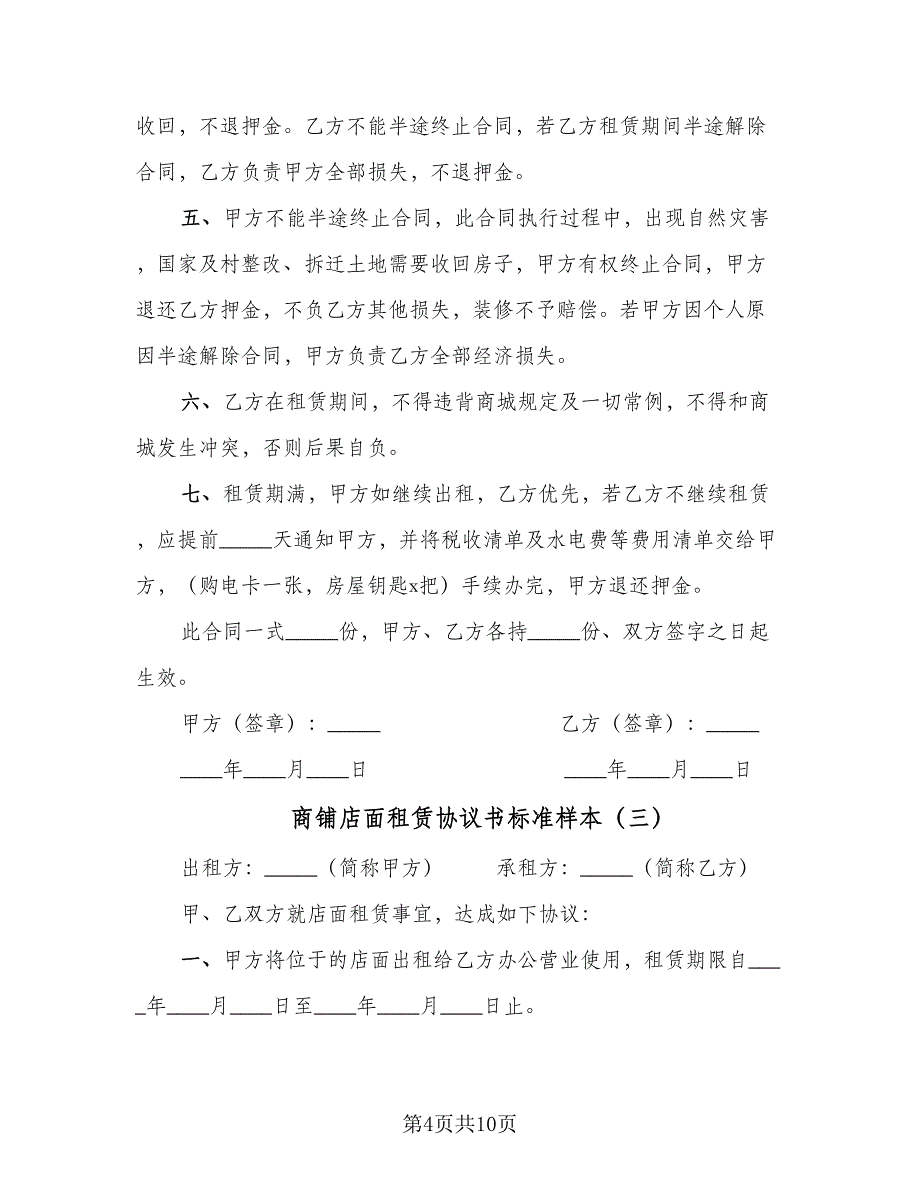 收回，不退押金。乙方不能半途终止合同，若乙方租赁期间半途解除
合同，乙方负责甲方全部损失，不退押金。
五、甲方不能半途终止合同，此合同执行过程中，出现自然灾害
，国家及村整改、拆迁土地需要收回房子，甲方有权终止合同，甲方
退还乙方押金，不负乙方其他损失，装修不予赔偿。若甲方因个人原
因半途解除合同，甲方负责乙方全部经济损失。
六、乙方在租赁期间，不得违背商城规定及一切常例，不得和商
城发生冲突，否则后果自负。
七、租赁期满，甲方如继续出租，乙方优先，若乙方不继续租赁
，应提前_____天通知甲方，并将税收清单及水电费等费用清单交给甲
方，（购电卡一张，房屋钥匙x把）手续办完，甲方退还押金。
此合同一式_____份，甲方、乙方各持_____份、双方签字之日起
生效。
甲方（签章）：_____ 乙方（签章）：_____
____年____月____日 ____年____月____日
商铺店面租赁协议书标准样本（三）
出租方：_____（简称甲方） 承租方：_____（简称乙方）
甲、乙双方就店面租赁事宜，达成如下协议：
一、甲方将位于的店面出租给乙方办公营业使用，租赁期限自___
_年____月____日至____年____月____日止。
第4页共10页